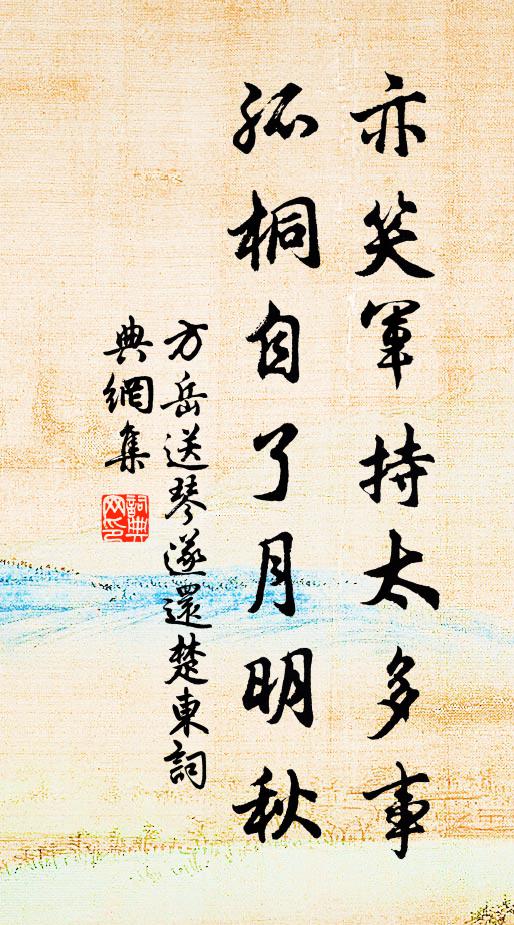 亦笑軍持太多事
孤桐自了月明秋
方岳送琴遂還楚東詞
典網集
詞典網印